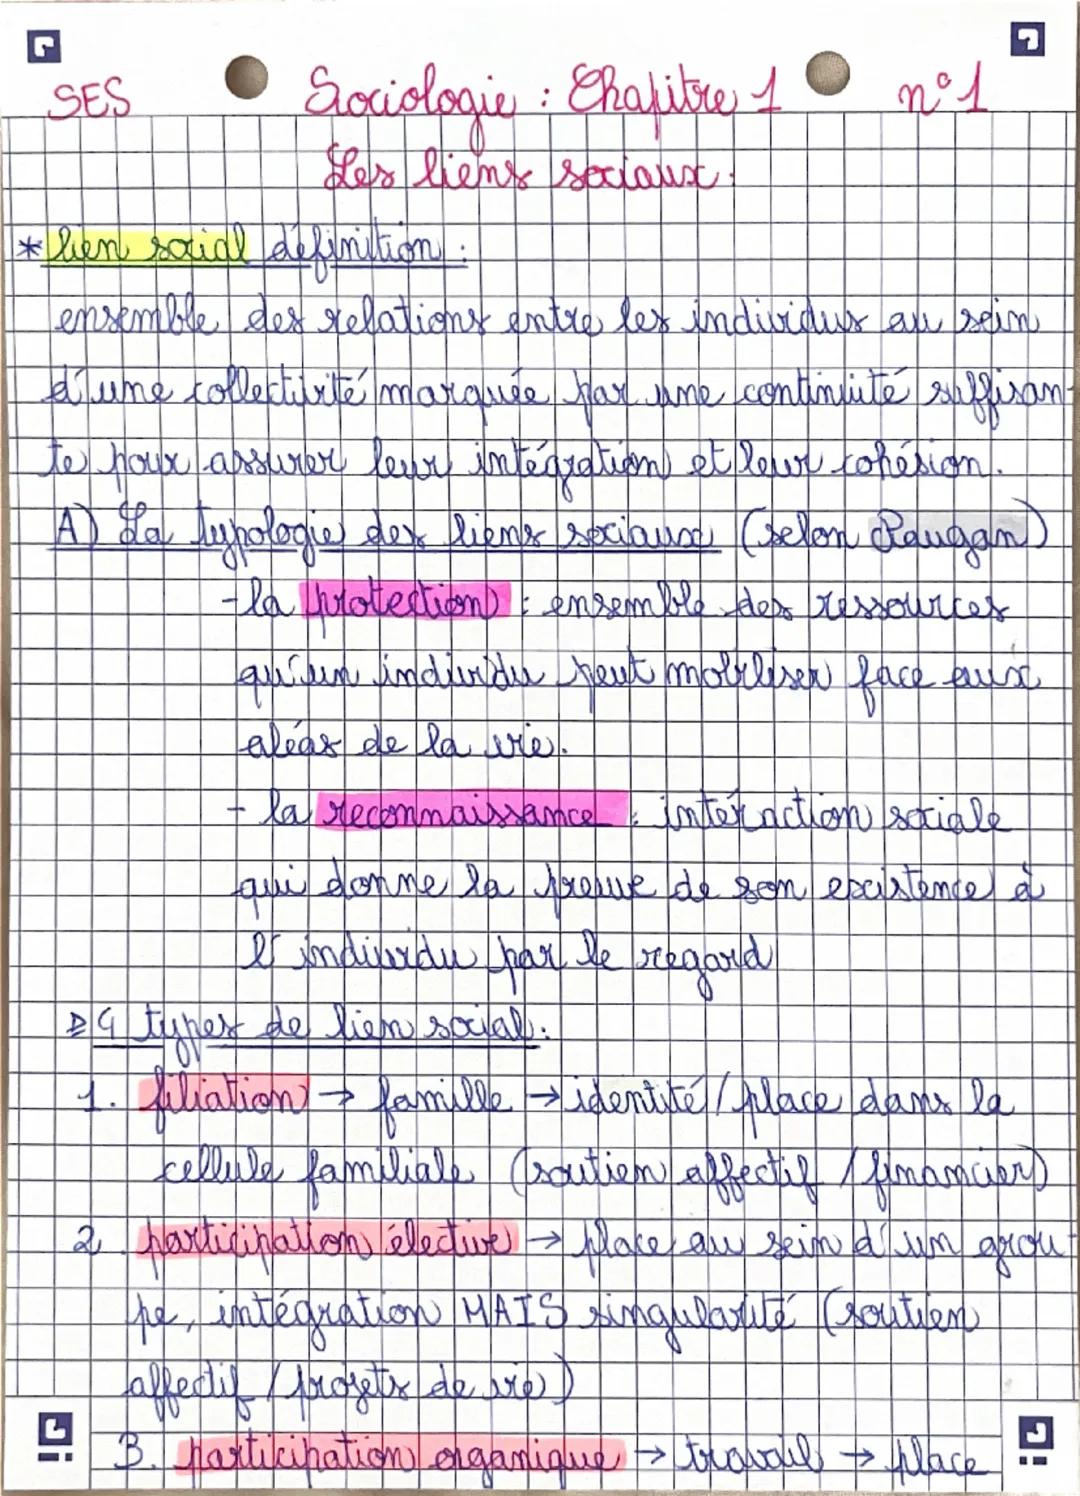 SES Sociologie : Chapitre 1 n°1
Les liens sociaux.
* lien social définition :
ensemble des relations entre les individus au sein
d'une collectivité marquée par une continuité suffisan-
te pour assurer leur intégration et leur cohésion.
A) La typologie des liens sociaux (selon Paugan)
- la protection : ensemble des ressources
qu'un individu peut mobiliser face aux
aléas de la vie.
- la reconnaissance : intéraction sociale
qui donne la preuve de son existence à
l'individu par le regard
4 types de lien social :
1. filiation → famille → identité / place dans la
cellule familiale (soutien affectif / financier)
2. participation élective → place au sein d'un grou-
pe, intégration MAIS singularité (soutien
affectif / projets de vie)
3. participation organique → travail → place